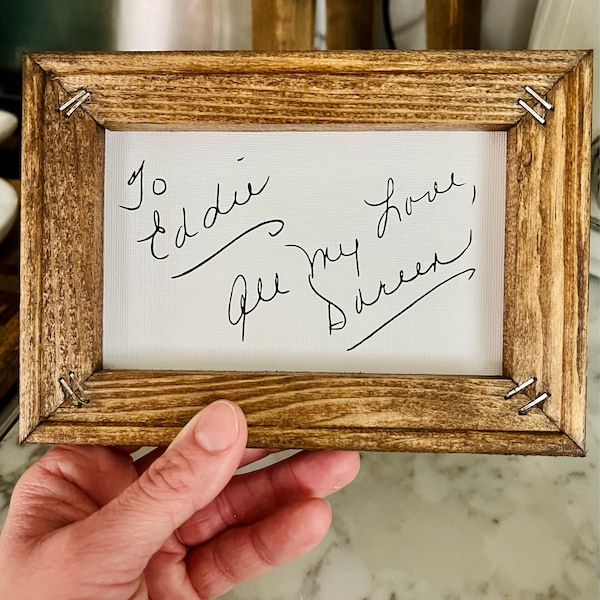 To
Eddie
All My Love,
Doreen